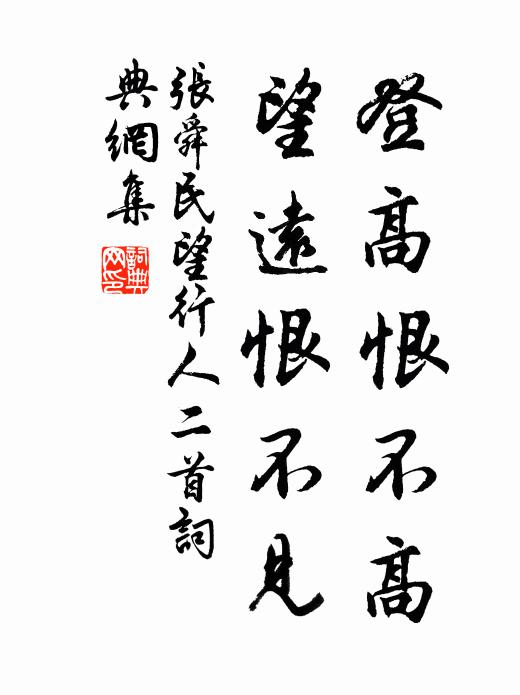 登高恨不高
望遠恨不見
張舜民望行人二首詞
典網集
詞典
网印